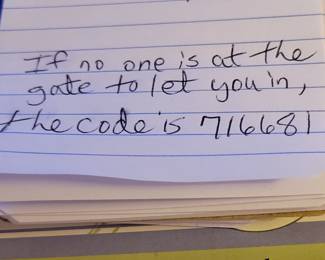 If no one is at the
gate to let you in,
the code is 716681